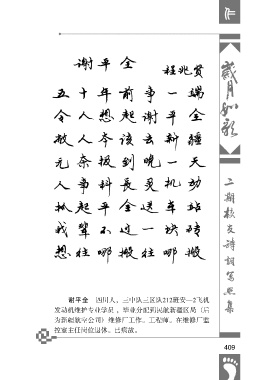 作
谢平全
程兆贤
五十年前争一端
令人想起谢平全
敌人本该去新疆
无奈报到晚一天
人事科长灵机动
抓起平全送车站
我辈不过一块砖
想往哪搬往哪搬
谢平全 四川人，三中队三区队212班安—2飞机
发动机维护专业学员，毕业分配到民航新疆区局（后
为新疆航空公司）维修厂工作。工程师。在维修厂监
控室主任岗位退休。已病故。
岁月如歌
二期校友诗词写照集
409